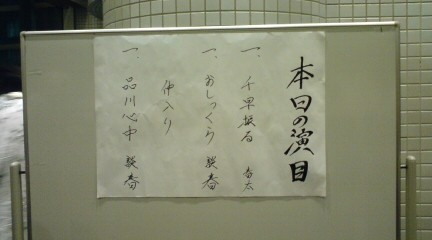 本日の演目
一、千早振る 春太
一、おしくら 駿春
仲入り
一、品川心中 駿春